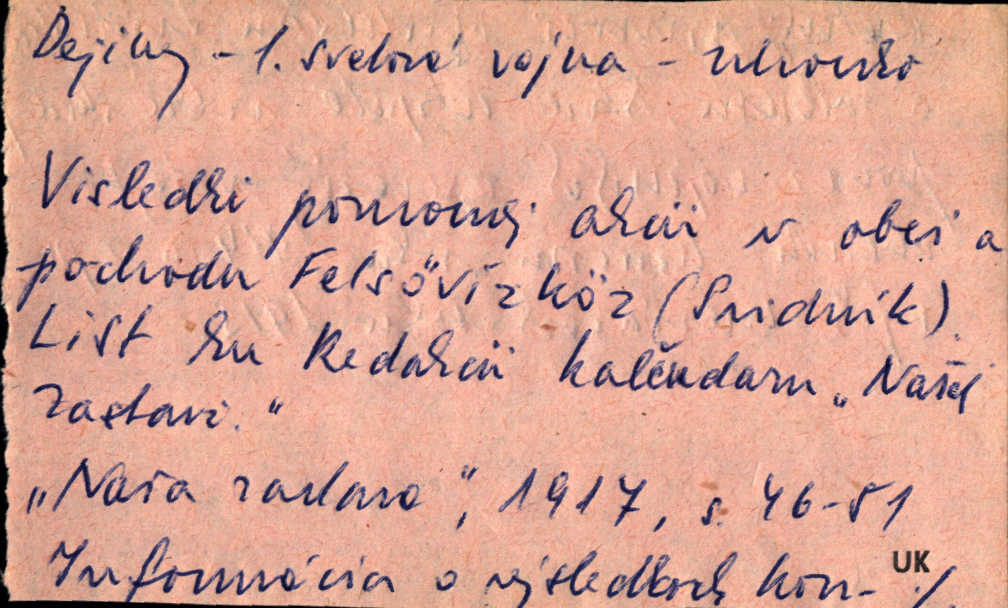 Dejiny - 1. svetová vojna -
Visledki pomocnej akcii v obci a
pochodu Felsővízköz (Svidník).
List ku Redakcii kalendaru „Našej
zastavi."
„Naša zastava", 1917, s. 46-51
Informácia o výsledkoch kon- ./.
UK